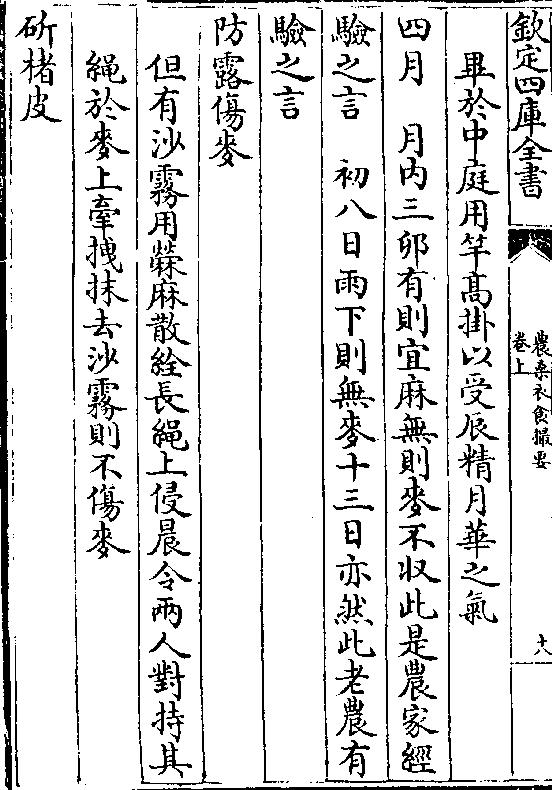 欽定四庫全書
農桑衣食撮要
卷上
十八
畢於中庭用竿髙掛以受辰精月華之氣
四月　月内三卯有則宜麻無則麥不收此是農家經
驗之言　初八日雨下則無麥十三日亦然此老農有
驗之言
防露傷麥
但有沙霧用檾麻散絟長繩上侵晨令兩人對持其
繩於麥上牽拽抹去沙霧則不傷麥
斫楮皮